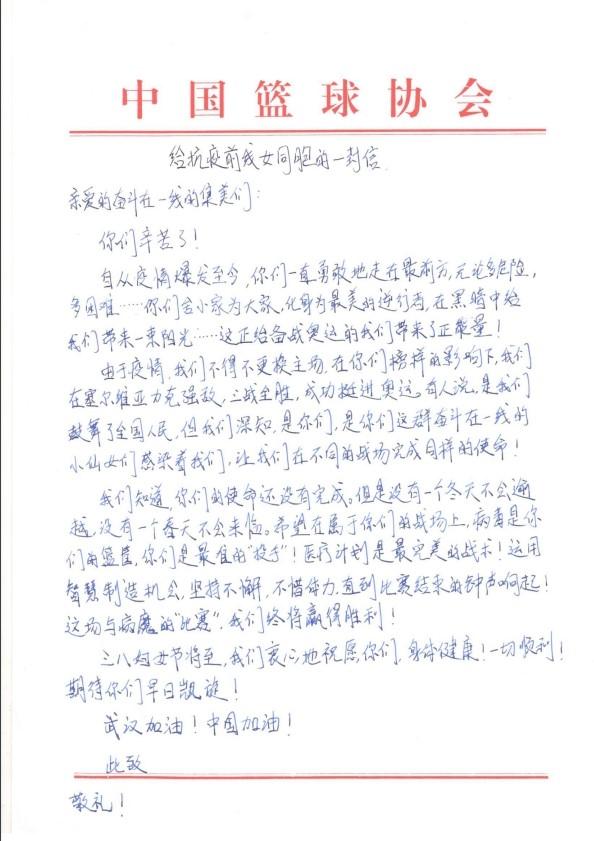 中国篮球协会
给抗疫前线女同胞的一封信
亲爱的奋斗在一线的集美们:
你们辛苦了!
自从疫情爆发至今,你们一直勇敢地走在最前方,无论多危险,
多困难……你们舍小家为大家,化身为最美的逆行者,在黑暗中给
我们带来一束阳光……这正给备战奥运的我们带来了正能量!
由于疫情,我们不得不更换主场,在你们榜样的影响下,我们
在塞尔维亚力克强敌,三战全胜,成功挺进奥运。有人说,是我们
鼓舞了全国人民,但我们深知,是你们,是你们这群奋斗在一线的
小仙女们感染着我们,让我们在不同的战场完成同样的使命!
我们知道,你们的使命还没有完成。但是没有一个冬天不会逾
越,没有一个春天不会来临。希望在属于你们的战场上,病者是你
们的篮筐,你们是最准的“投手”!医疗计划是最完美的战术!运用
智慧制造机会,坚持不懈,不惜体力,直到比赛结束的钟声响起!
这场与病魔的“比赛”,我们终将赢得胜利!
三八妇女节将至,我们衷心地祝愿你们,身体健康!一切顺利!
期待你们早日凯旋!
武汉加油!中国加油!
此致
敬礼!